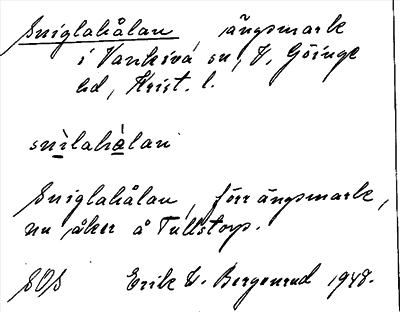 Sniglahålan, ängsmark
i Vankiva sn, V. Göinge
hd, Krist. l.
snìlahàlan
Sniglahålan, förr ängsmark,
nu åker å Tullstorp.
SOS Erik V. Bergenrud 1948.